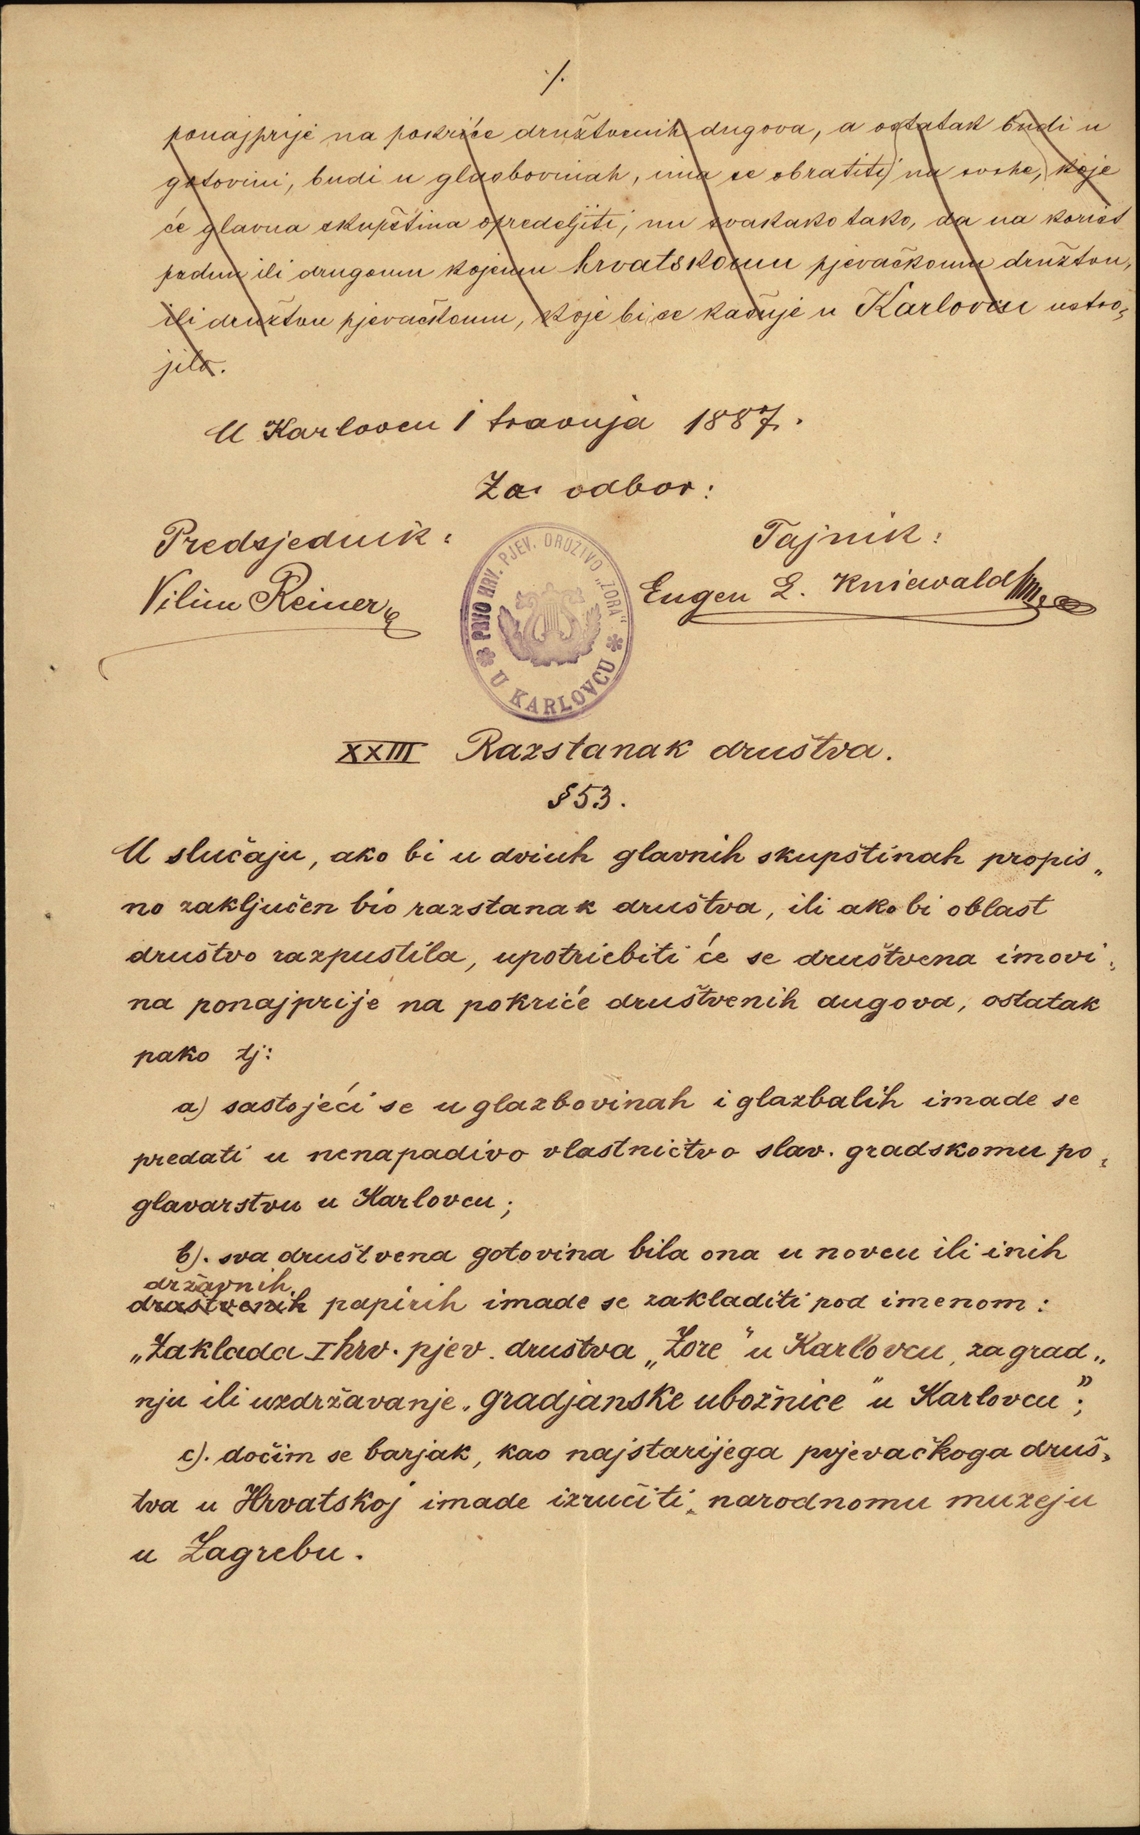 ./.
ponajprije na pokriće družtvenih dugova, a ostatak budi u
gotovini, budi u glasbovinah, ima se obratiti na svrhe, koje
će glavna skupština opredeljiti, nu svakako tako, da na korist
jednu ili drugomu kojemu hrvatskomu pjevačkomu družtvu,
ili družtvu pjevačkomu, koje bi se kašnje u Karlovcu ustro„
jilo.
U Karlovcu 1 travnja 1887.
Za odbor:
Predsjednik:
Tajnik:
Vilim Reiner
Eugen L. Kniewald
PRVO HRV. PJEV. DRUŽTVO „ZORA“
U KARLOVCU
XXIII Razstanak društva.
§ 53.
U slučaju, ako bi u dviuh glavnih skupštinah propis„
no zaključen bio razstanak društva, ili ako bi oblast
društvo razpustila, upotriebiti će se društvena imovi„
na ponajprije na pokriće društvenih dugova, ostatak
pako tj:
a) sastojeći se u glazbovinah i glazbalih imade se
predati u nenapadivo vlastničtvo slav. gradskomu po„
glavarstvu u Karlovcu;
b). sva društvena gotovina bila ona u novcu ili inih
državnih
društvenih papirih imade se zakladiti pod imenom:
„Zaklada I hrv. pjev. društva „Zore“ u Karlovcu, za grad„
nju ili uzdržavanje „gradjanske ubožnice“ u Karlovcu“;
c). dočim se barjak, kao najstarijega pvjevačkoga druš„
tva u Hrvatskoj imade izručiti narodnomu muzeju
u Zagrebu.